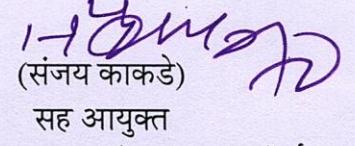 (संजय काकडे)
सह आयुक्त